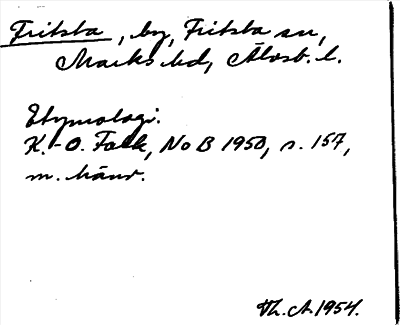 Fritsla, by, Fritsla sn,
Marks hd, Älvsb. l.
Etymologi.
K.-O. Falk, NoB 1950, s. 157,
m. hänv.
Th. A. 1954.